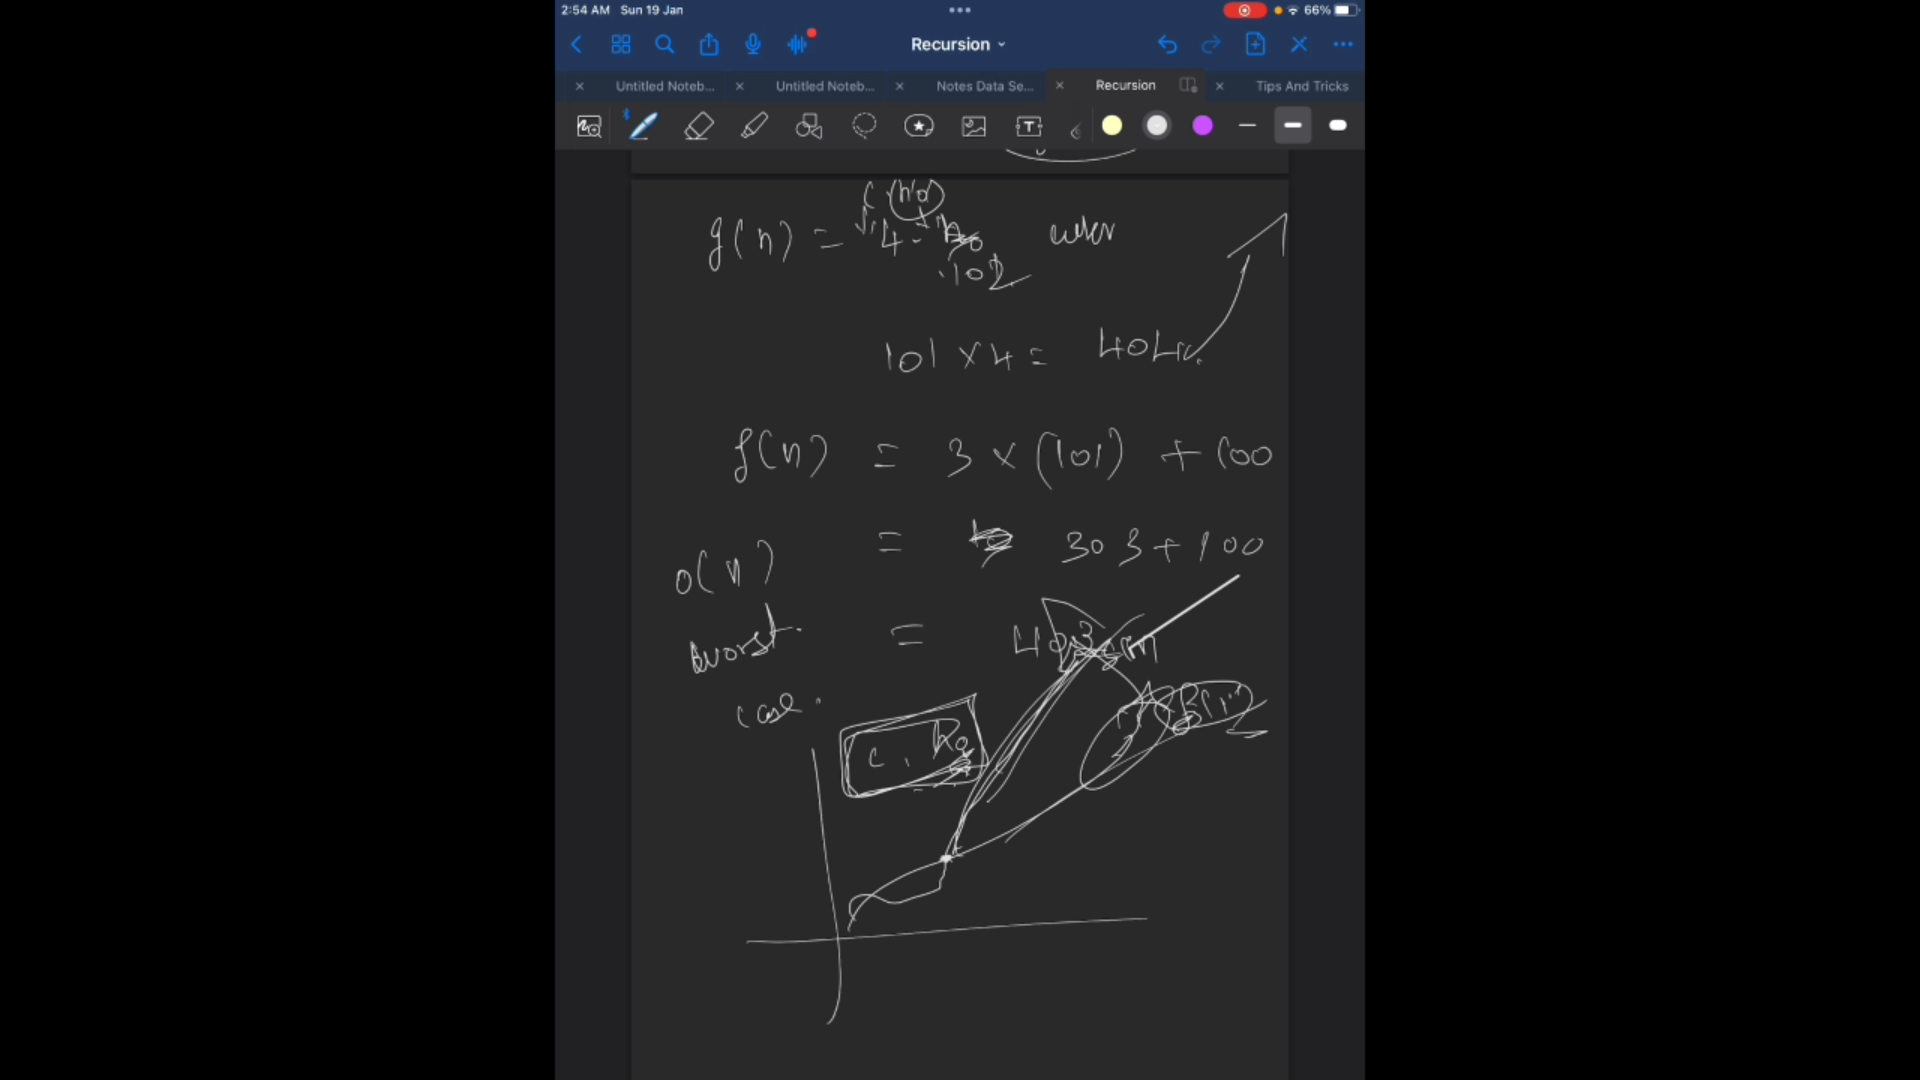 2:54 AM Sun 19 Jan
66%
Recursion
Untitled Noteb...
Untitled Noteb...
Notes Data Se...
Recursion
Tips And Tricks
g(n) = 4 .
.102
101 × 4 = 404
f(n) = 3 × (101) + 100
= 303 + 100
O(n)
worst
= 403
case.
c, n₀